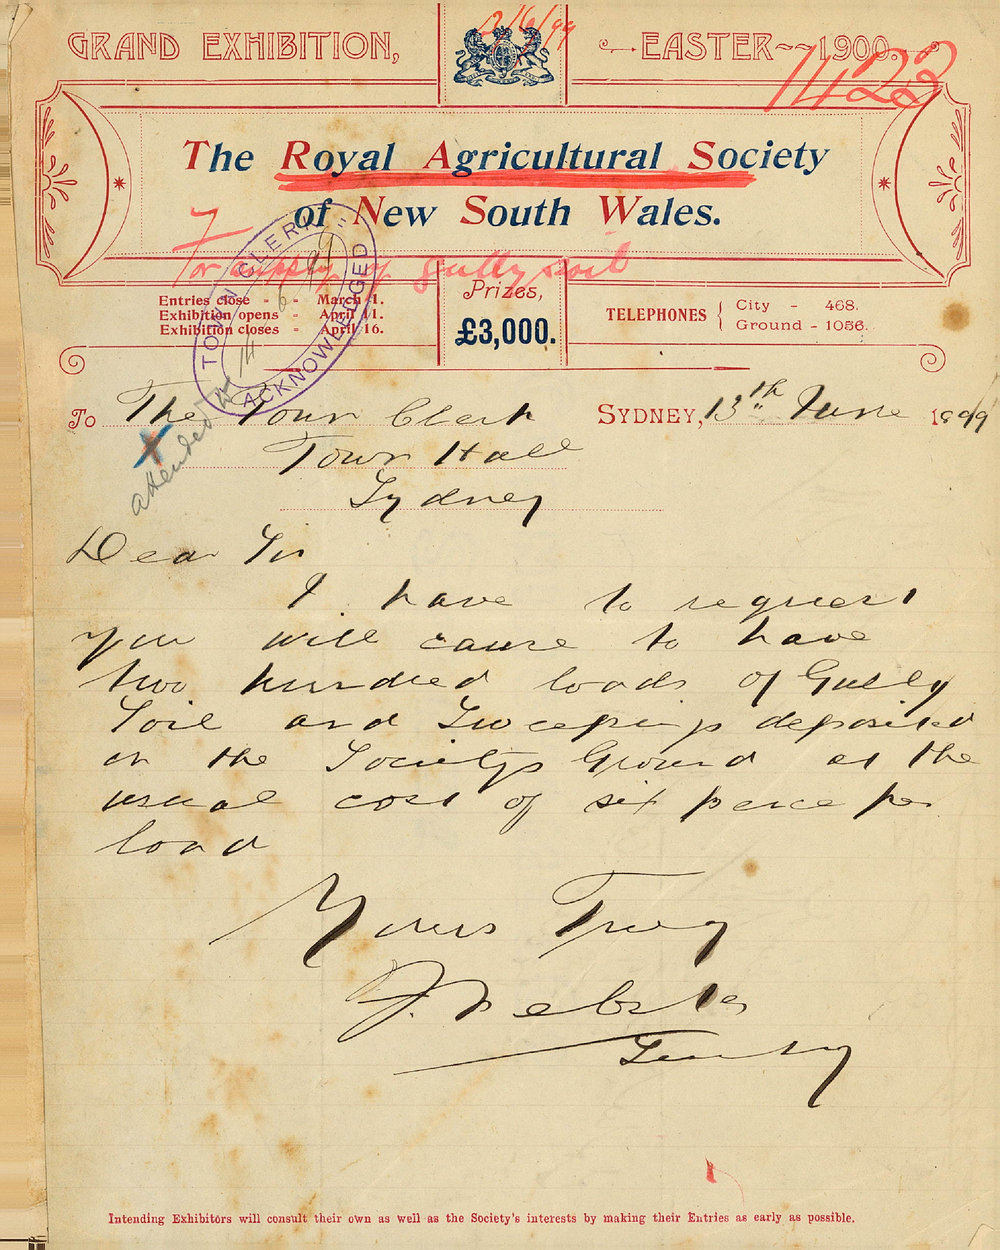 GRAND EXHIBITION,
EASTER 1900.
1422
The Royal Agricultural Society
of New South Wales.
For supply of gully soil
TOWN CLERK
ACKNOWLEDGED
Entries close - - March 1.
Exhibition opens - April 11.
Exhibition closes - April 16.
Prizes,
£3,000.
TELEPHONES { City - 468.
Ground - 1056.
To The Town Clerk
SYDNEY, 13th June 1899
Town Hall
Sydney
attended to
Dear Sir
I have to request
you will cause to have
two hundred loads of Gully
Soil and Sweepings deposited
on the Societys Ground at the
usual cost of six pence per
load
Yours Truly
F. Webster
Secretary
Intending Exhibitors will consult their own as well as the Society's interests by making their Entries as early as possible.